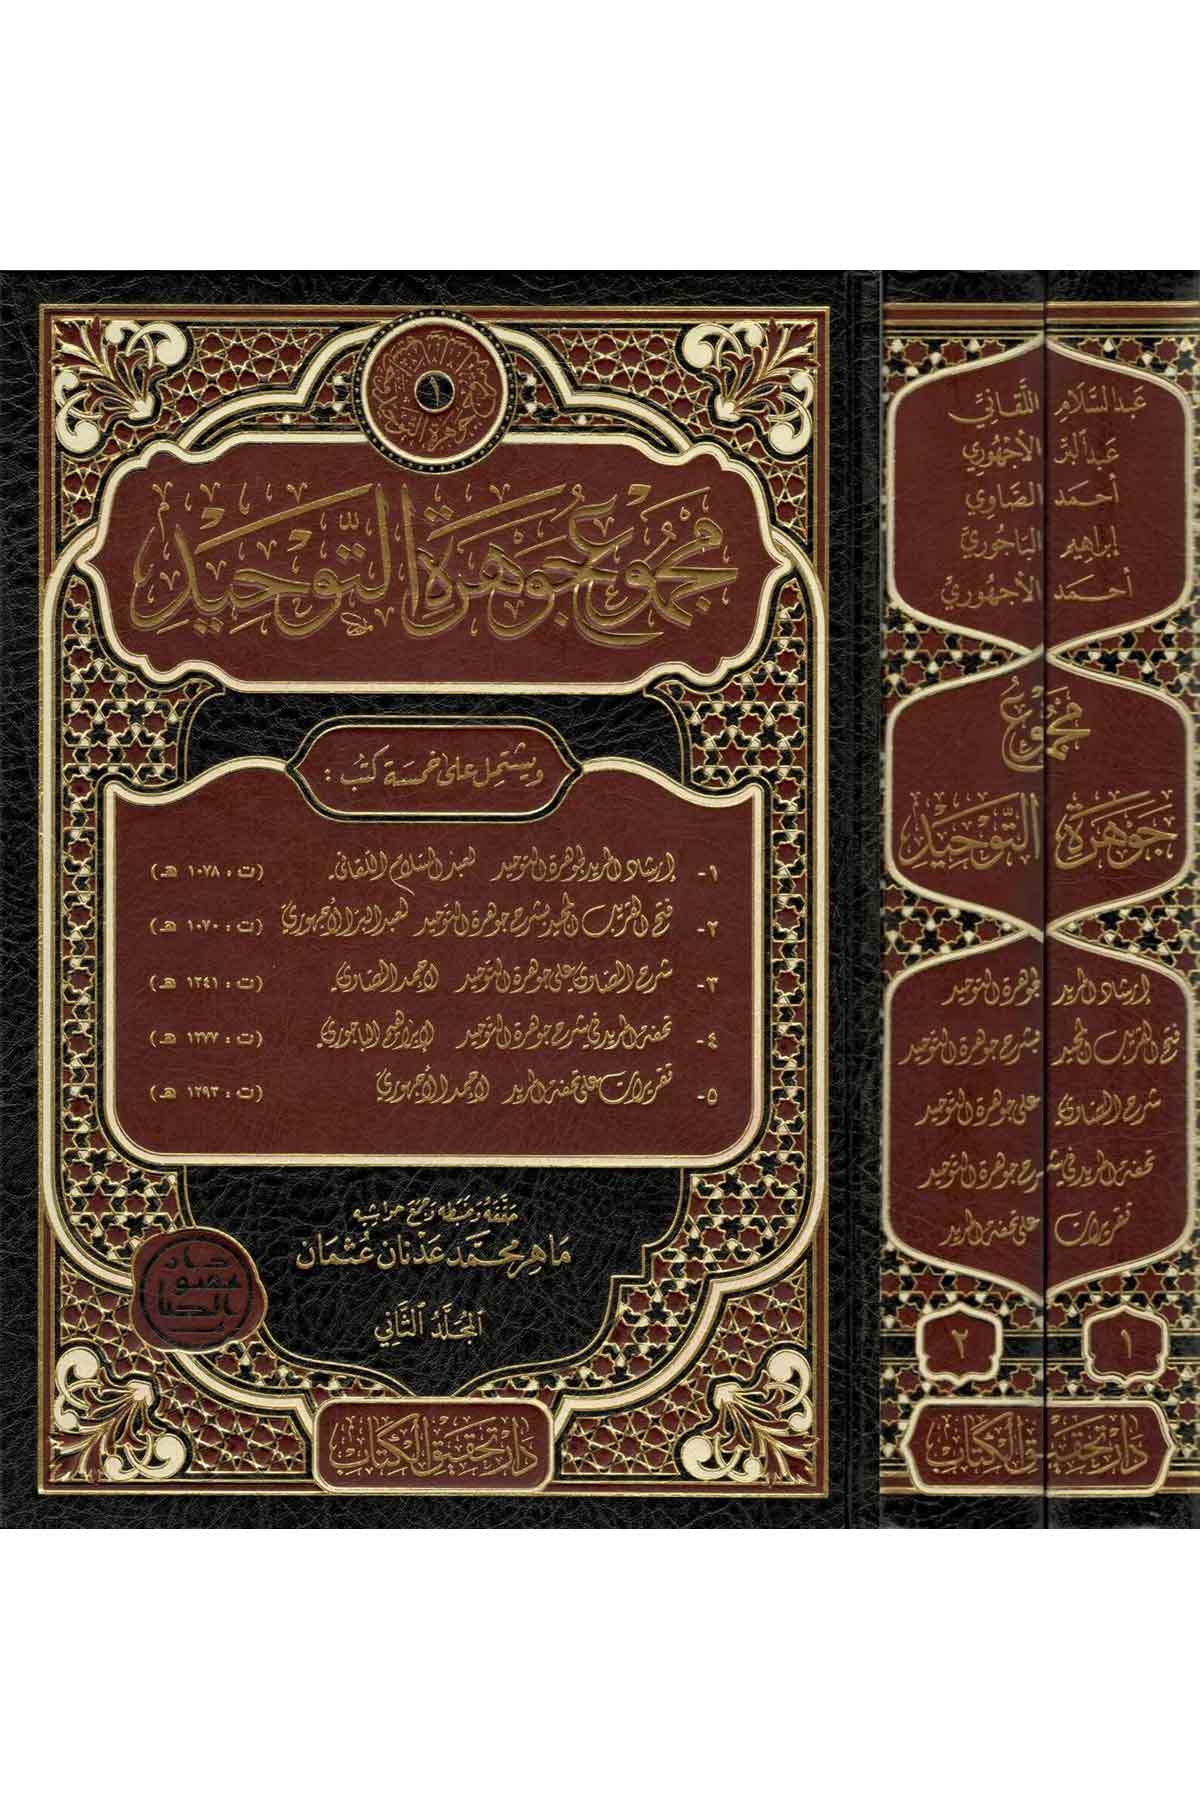 ١
جوهرة التوحيد
مجموع جوهرة التوحيد
ويشتمل على خمسة كتب :
١- إرشاد المريد لجوهرة التوحيد لعبد السلام اللقاني. (ت : ١٠٧٨ هـ)
٢- فتح القريب المجيد بشرح جوهرة التوحيد لعبد البر الأجهوري (ت : ١٠٧٠ هـ)
٣- شرح الصاوي على جوهرة التوحيد لأحمد الصاوي. (ت : ١٢٤١ هـ)
٤- تحفة المريد في شرح جوهرة التوحيد لإبراهيم الباجوري. (ت : ١٢٧٧ هـ)
٥- تقريرات على تحفة المريد لأحمد الأجهوري (ت : ١٢٩٣ هـ)
حققه وضبطه وجمع حواشيه
ماهر محمد عدنان عثمان
المجلد الثاني
دار تحقيق الكتاب
عبد السلام اللقاني
عبد البر الأجهوري
أحمد الصاوي
إبراهيم الباجوري
أحمد الأجهوري
مجموع
جوهرة التوحيد
إرشاد المريد لجوهرة التوحيد
فتح القريب المجيد بشرح جوهرة التوحيد
شرح الصاوي على جوهرة التوحيد
تحفة المريد في شرح جوهرة التوحيد
تقريرات على تحفة المريد
١ ٢
دار تحقيق الكتاب